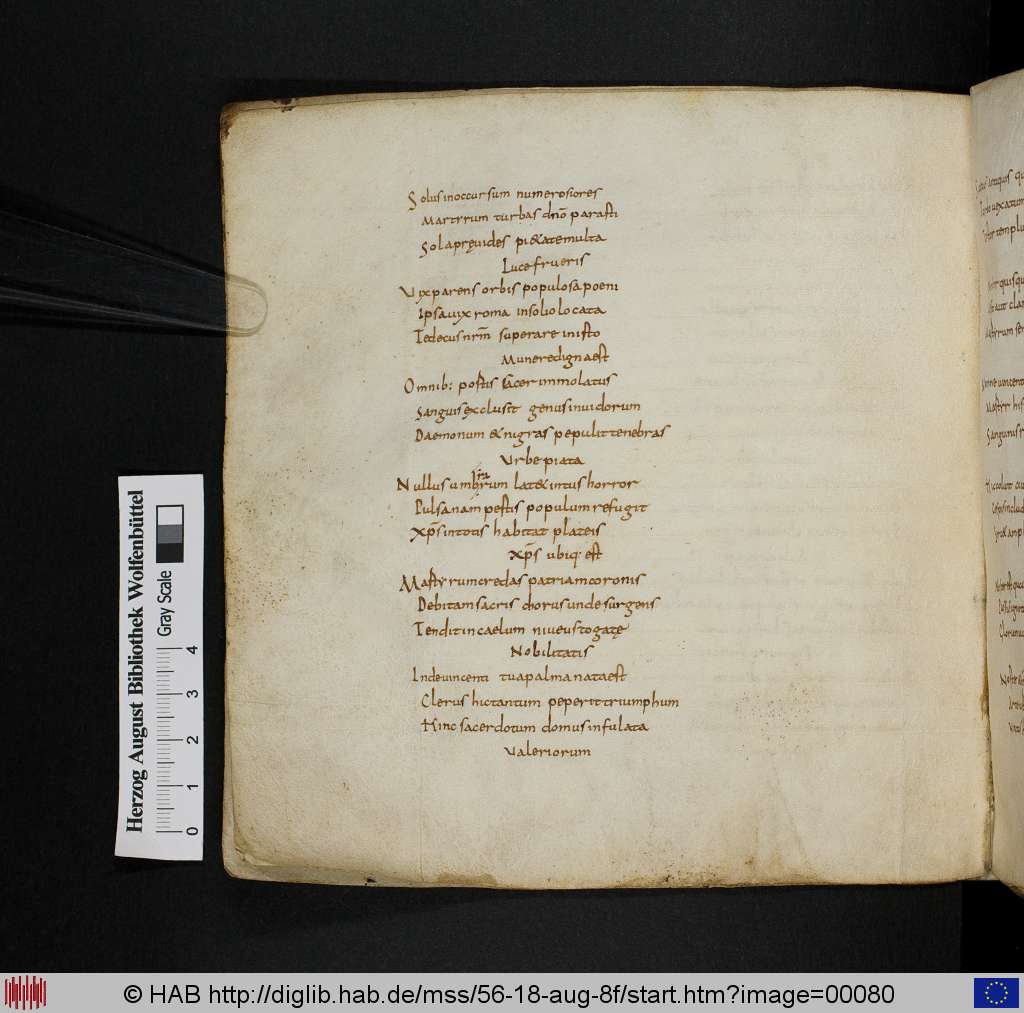 Solus inoccursum numerosiores
Martrrum turbas dnō parasti
Sola prȩuides pietate multa
Luce frueris
Vix parens orbis populosa poeni
Ipsa uix roma insolio locata
Te decus nrm̄ superare inisto
Munere digna est
Omnib: postis sacer immolatus
Sanguis exclusit genus inuidorum
Daemonum & nigras pepulit tenebras
Vrbe piata
Nullus umbrarum latet intus horror
Pulsa nam pestis populum refugit
Xp̄s intotis habitat plateis
Xp̄s ubiq: est
Martyrum credas patriam coronis
Debitam sacris chorus unde surgens
Tendit in caelum niueus togatȩ
Nobilitatis
Inde uincenti tua palma nata est
Clerus hic tantum peperit triumphum
Hinc sacerdotum domus infulata
Valeriorum
Herzog August Bibliothek Wolfenbüttel
Gray Scale
0 1 2 3 4
© HAB http://diglib.hab.de/mss/56-18-aug-8f/start.htm?image=00080